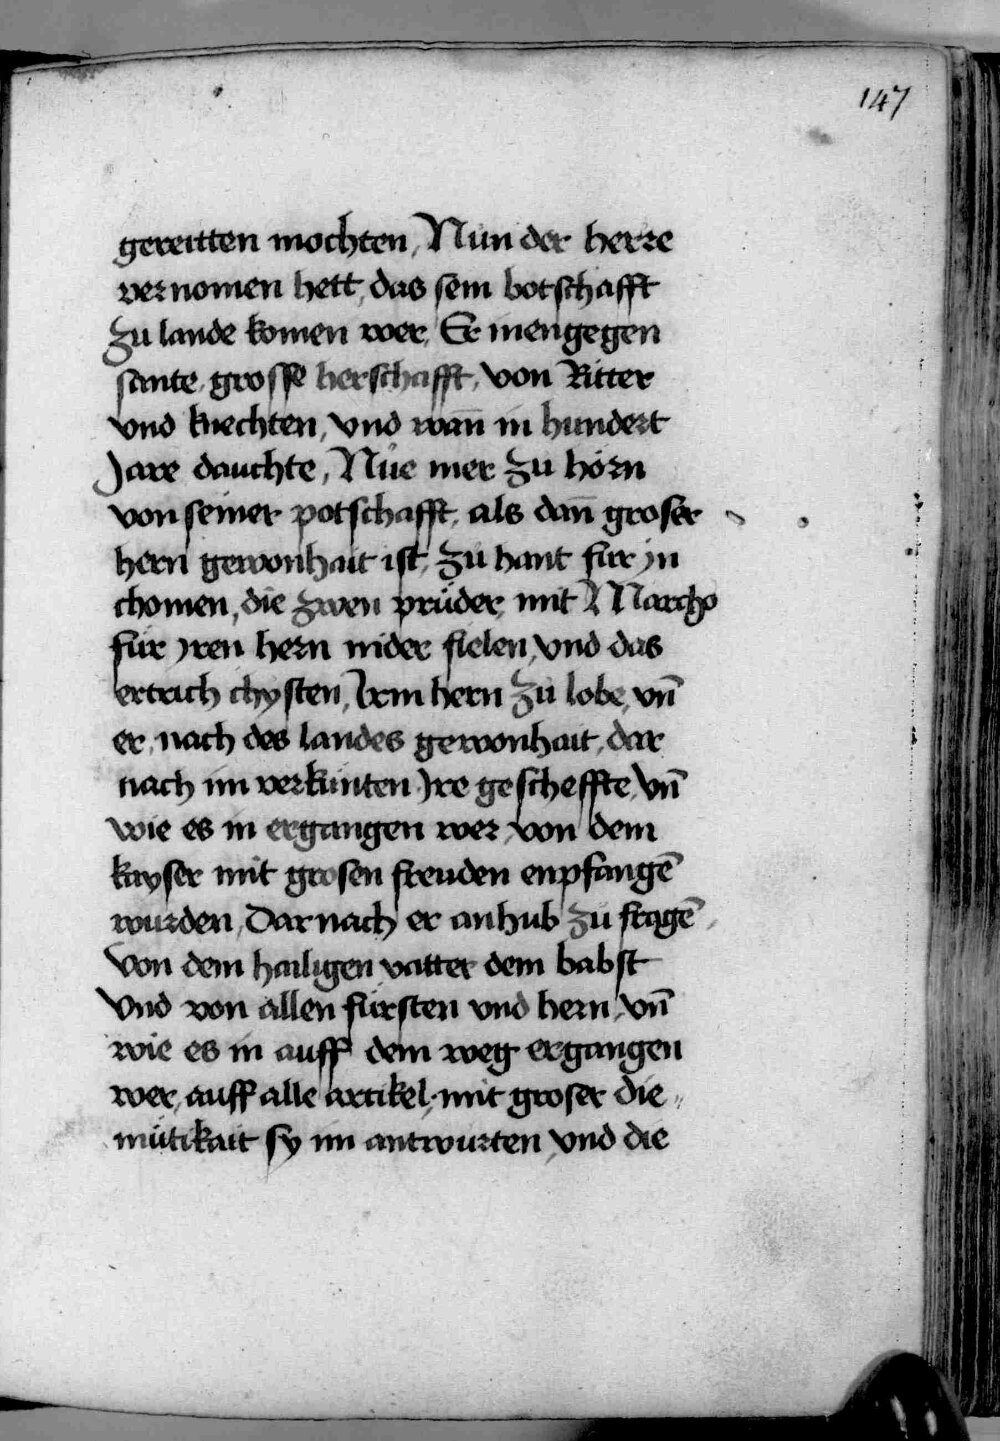 147
gereitten mochten, Nun der herre
vernomen hett, das sein botschafft
zu lande komen wer, Er inengegen
sante, grosse herschafft, von Ritter
vnd knechten, vnd wan̄ in hundert
Jare dauchte, Nue mer zu hörn
von seiner potschafft, als dan̄ groser
hern gewonhait ist, zu hant fur jn
chomen, die zwen prüder, mit Marcho
für yren hern nider fielen, vnd das
ertrich chysten, Irm hern zu lobe, vn̄
er, nach des landes gewonhait, dar
nach im verkünten Jre gescheffte, vn̄
wie es in ergangen wer, von dem
kayser mit grosen freuden enpfangē
wurden, Dar nach er anhub zu fragē,
von dem hailigen vatter dem babst
Vnd von allen fürsten vnd hern, vn̄
wie es in auff dem weg ergangen
wer, auff alle artikel, mit groser die„
mütikait sy im antwurten, vnd die